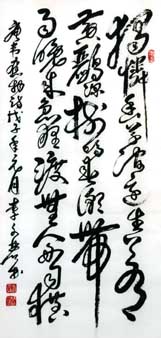 獨憐幽草澗邊生上有
黃鸝深樹鳴春潮帶
雨晚來急野渡無人舟自橫
唐韋應物詩戊子年元月李